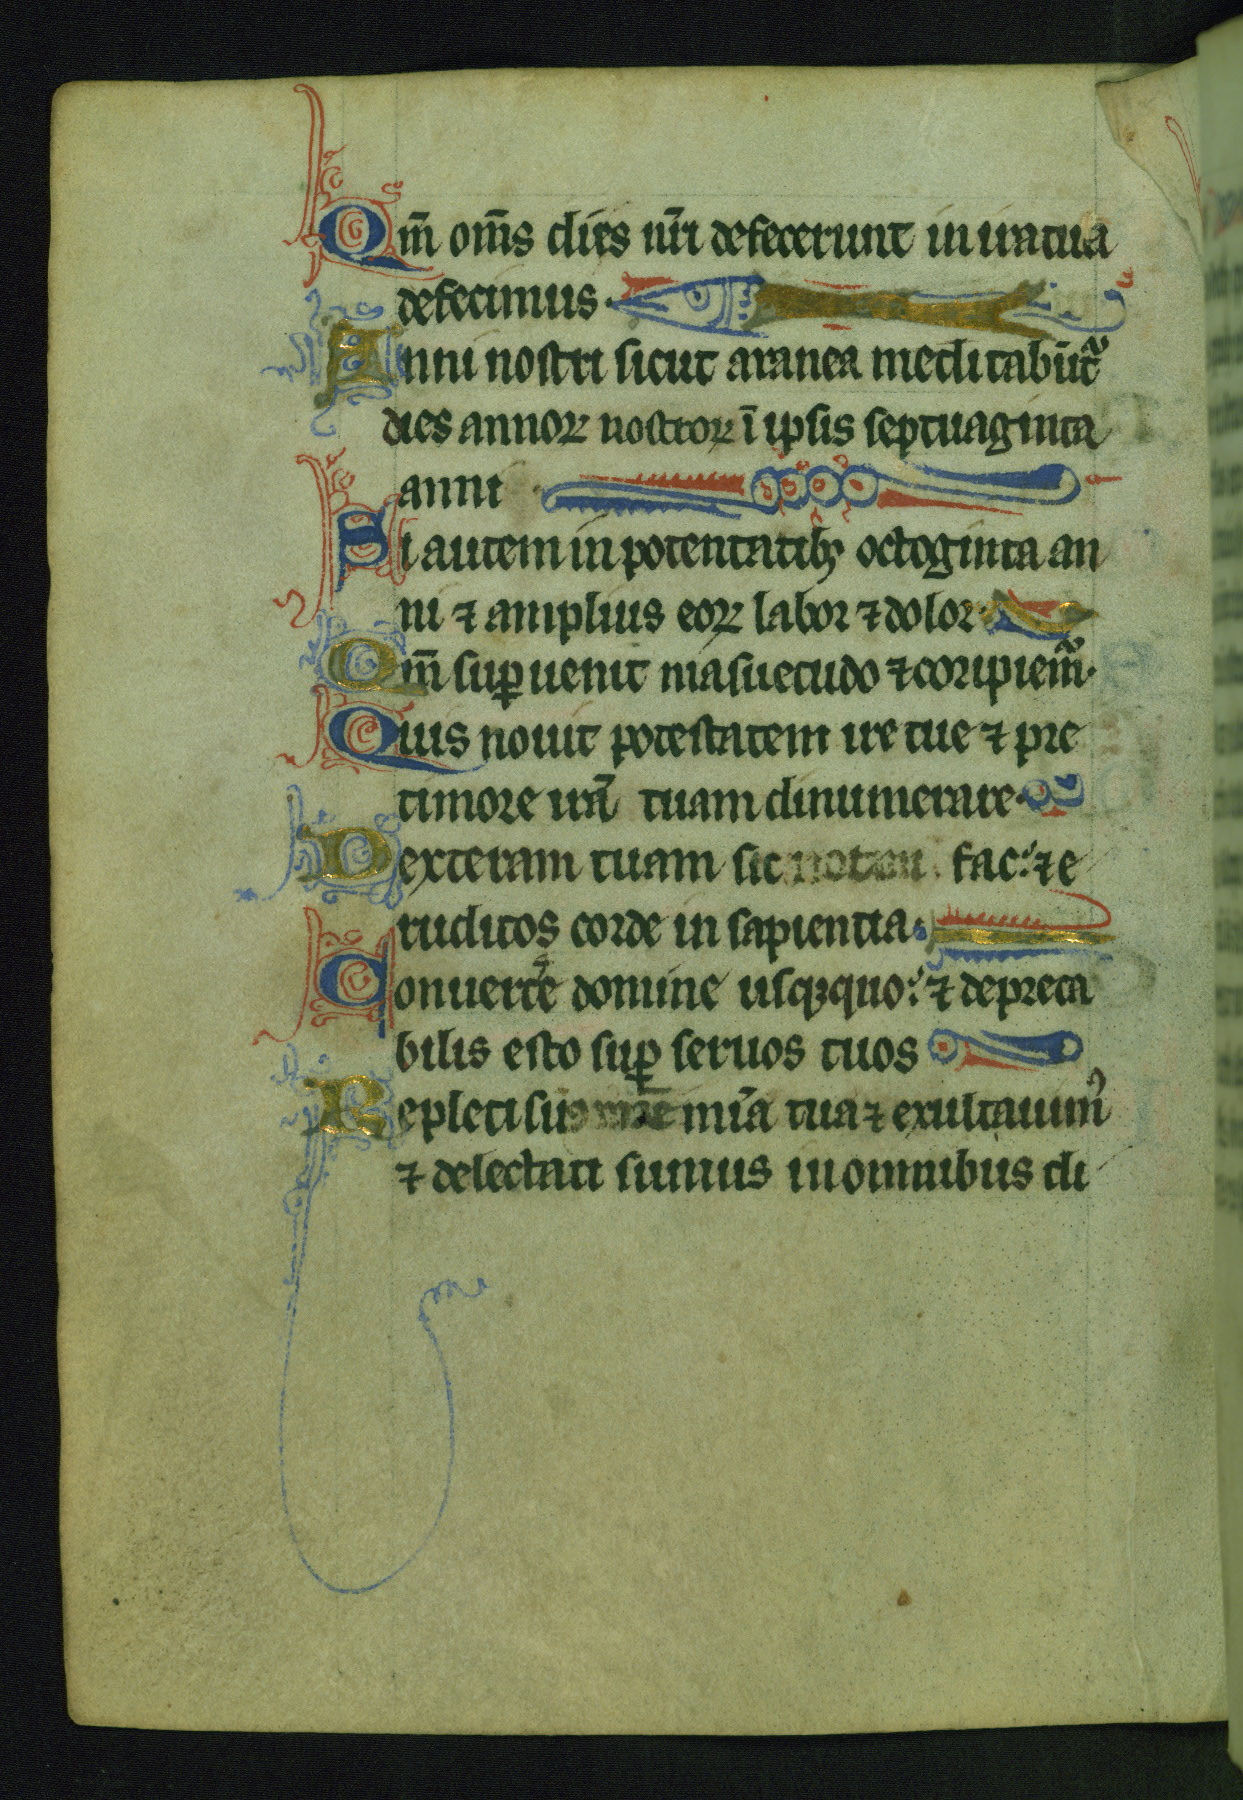 Qm̄ om̄s dies nr̄i defecerunt in ira tua
defecimus.
Anni nostri sicut aranea meditabūt᷑
dies annoꝝ nostroꝝ ī ipsis septuaginta
anni
Si autem in potentatibꝫ octoginta an
ni ⁊ amplius eoꝝ labor ⁊ dolor.
Qm̄ suꝑuenit māsuetudo ⁊ coripiem᷑.
Quis nouit potestatem ire tue ⁊ pre
timore irā tuam dinumerare.
Dexteram tuam sic notam fac: ⁊ e
ruditos corde in sapientia.
Conuerte᷑ domine usqꝫquo: ⁊ depreca
bilis esto suꝑ seruos tuos
Repleti sum᷒ mane mīa tua ⁊ exultauim᷒
⁊ delectati sumus in omnibus di